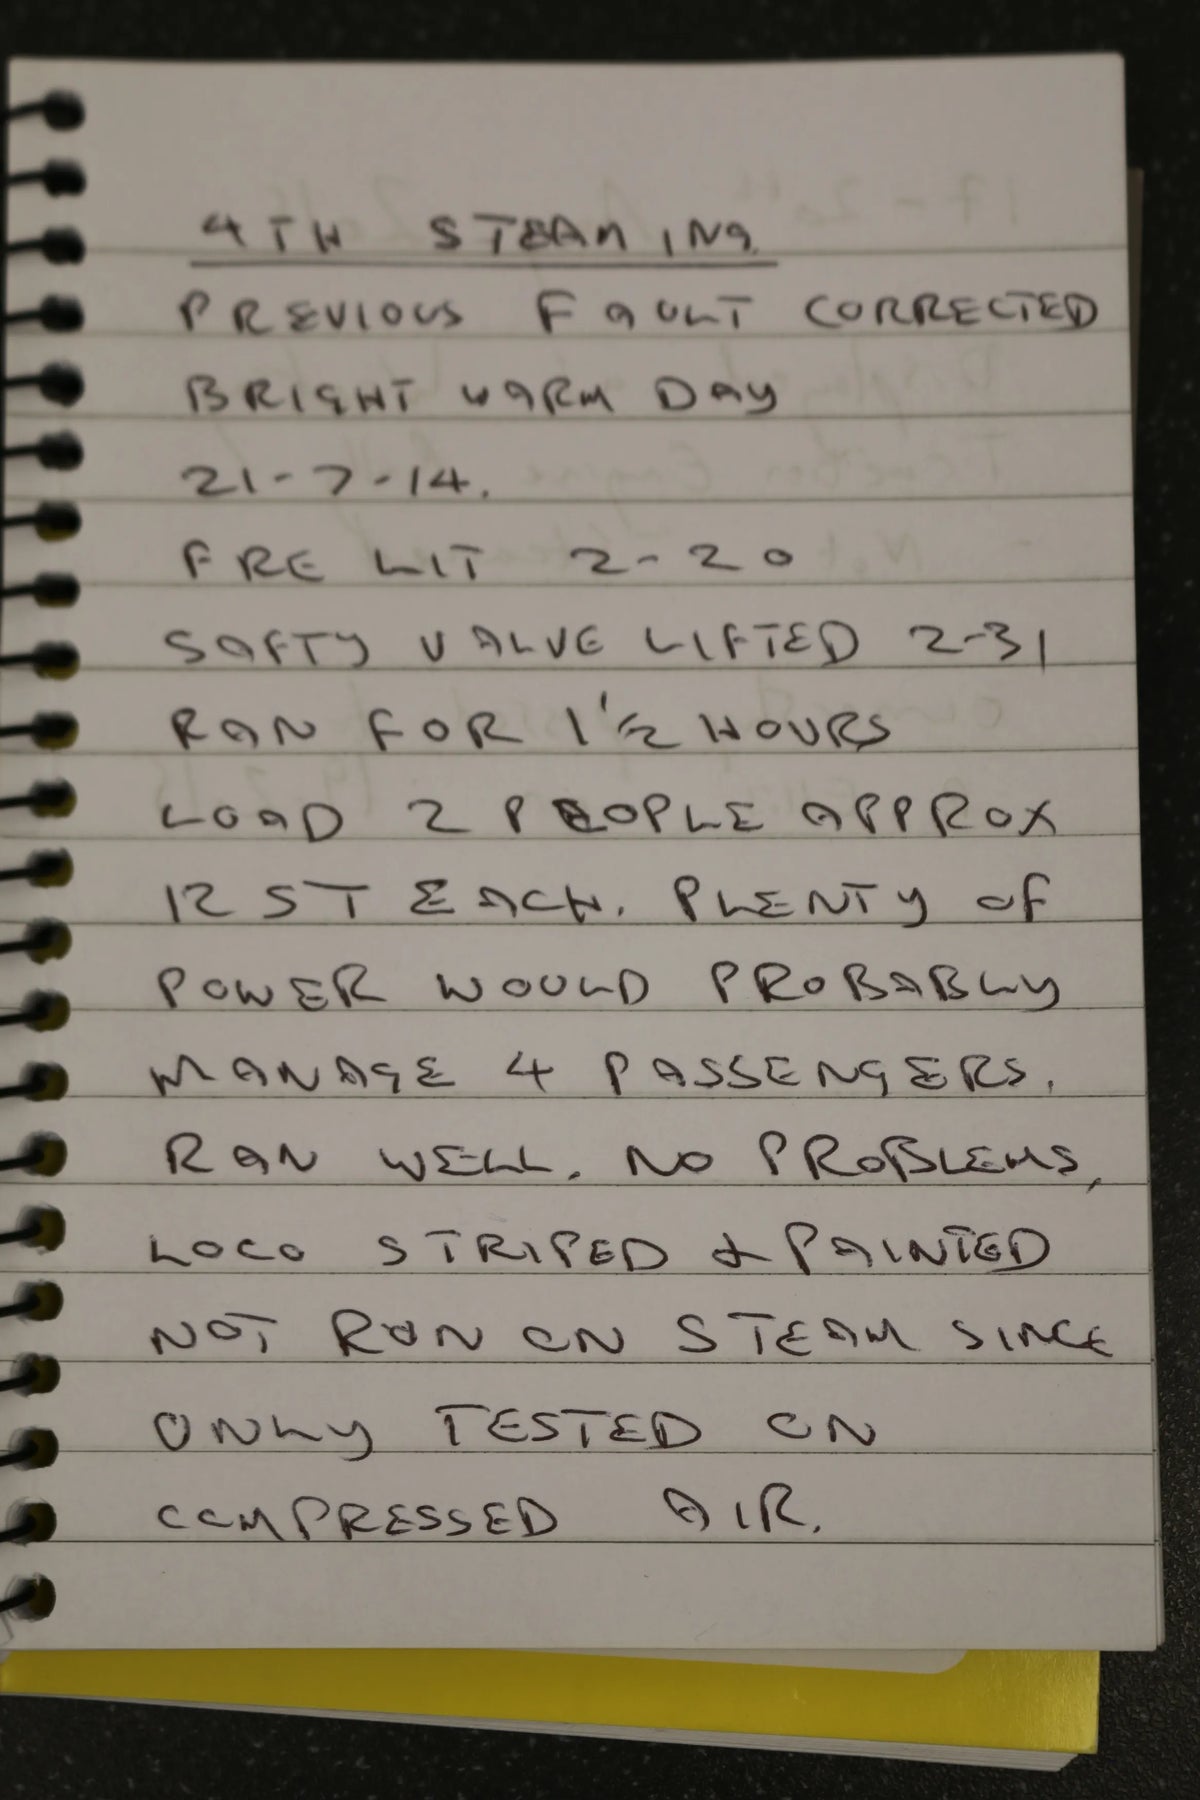 4TH STEAMING.
PREVIOUS FAULT CORRECTED
BRIGHT WARM DAY
21-7-14.
FRE LIT 2-20
SAFTY VALVE LIFTED 2-31
RAN FOR 1 1/2 HOURS
LOAD 2 PEOPLE APPROX
12 ST EACH. PLENTY OF
POWER WOULD PROBABLY
MANAGE 4 PASSENGERS.
RAN WELL. NO PROBLEMS,
LOCO STRIPED & PAINTED
NOT RAN ON STEAM SINCE
ONLY TESTED ON
COMPRESSED AIR.